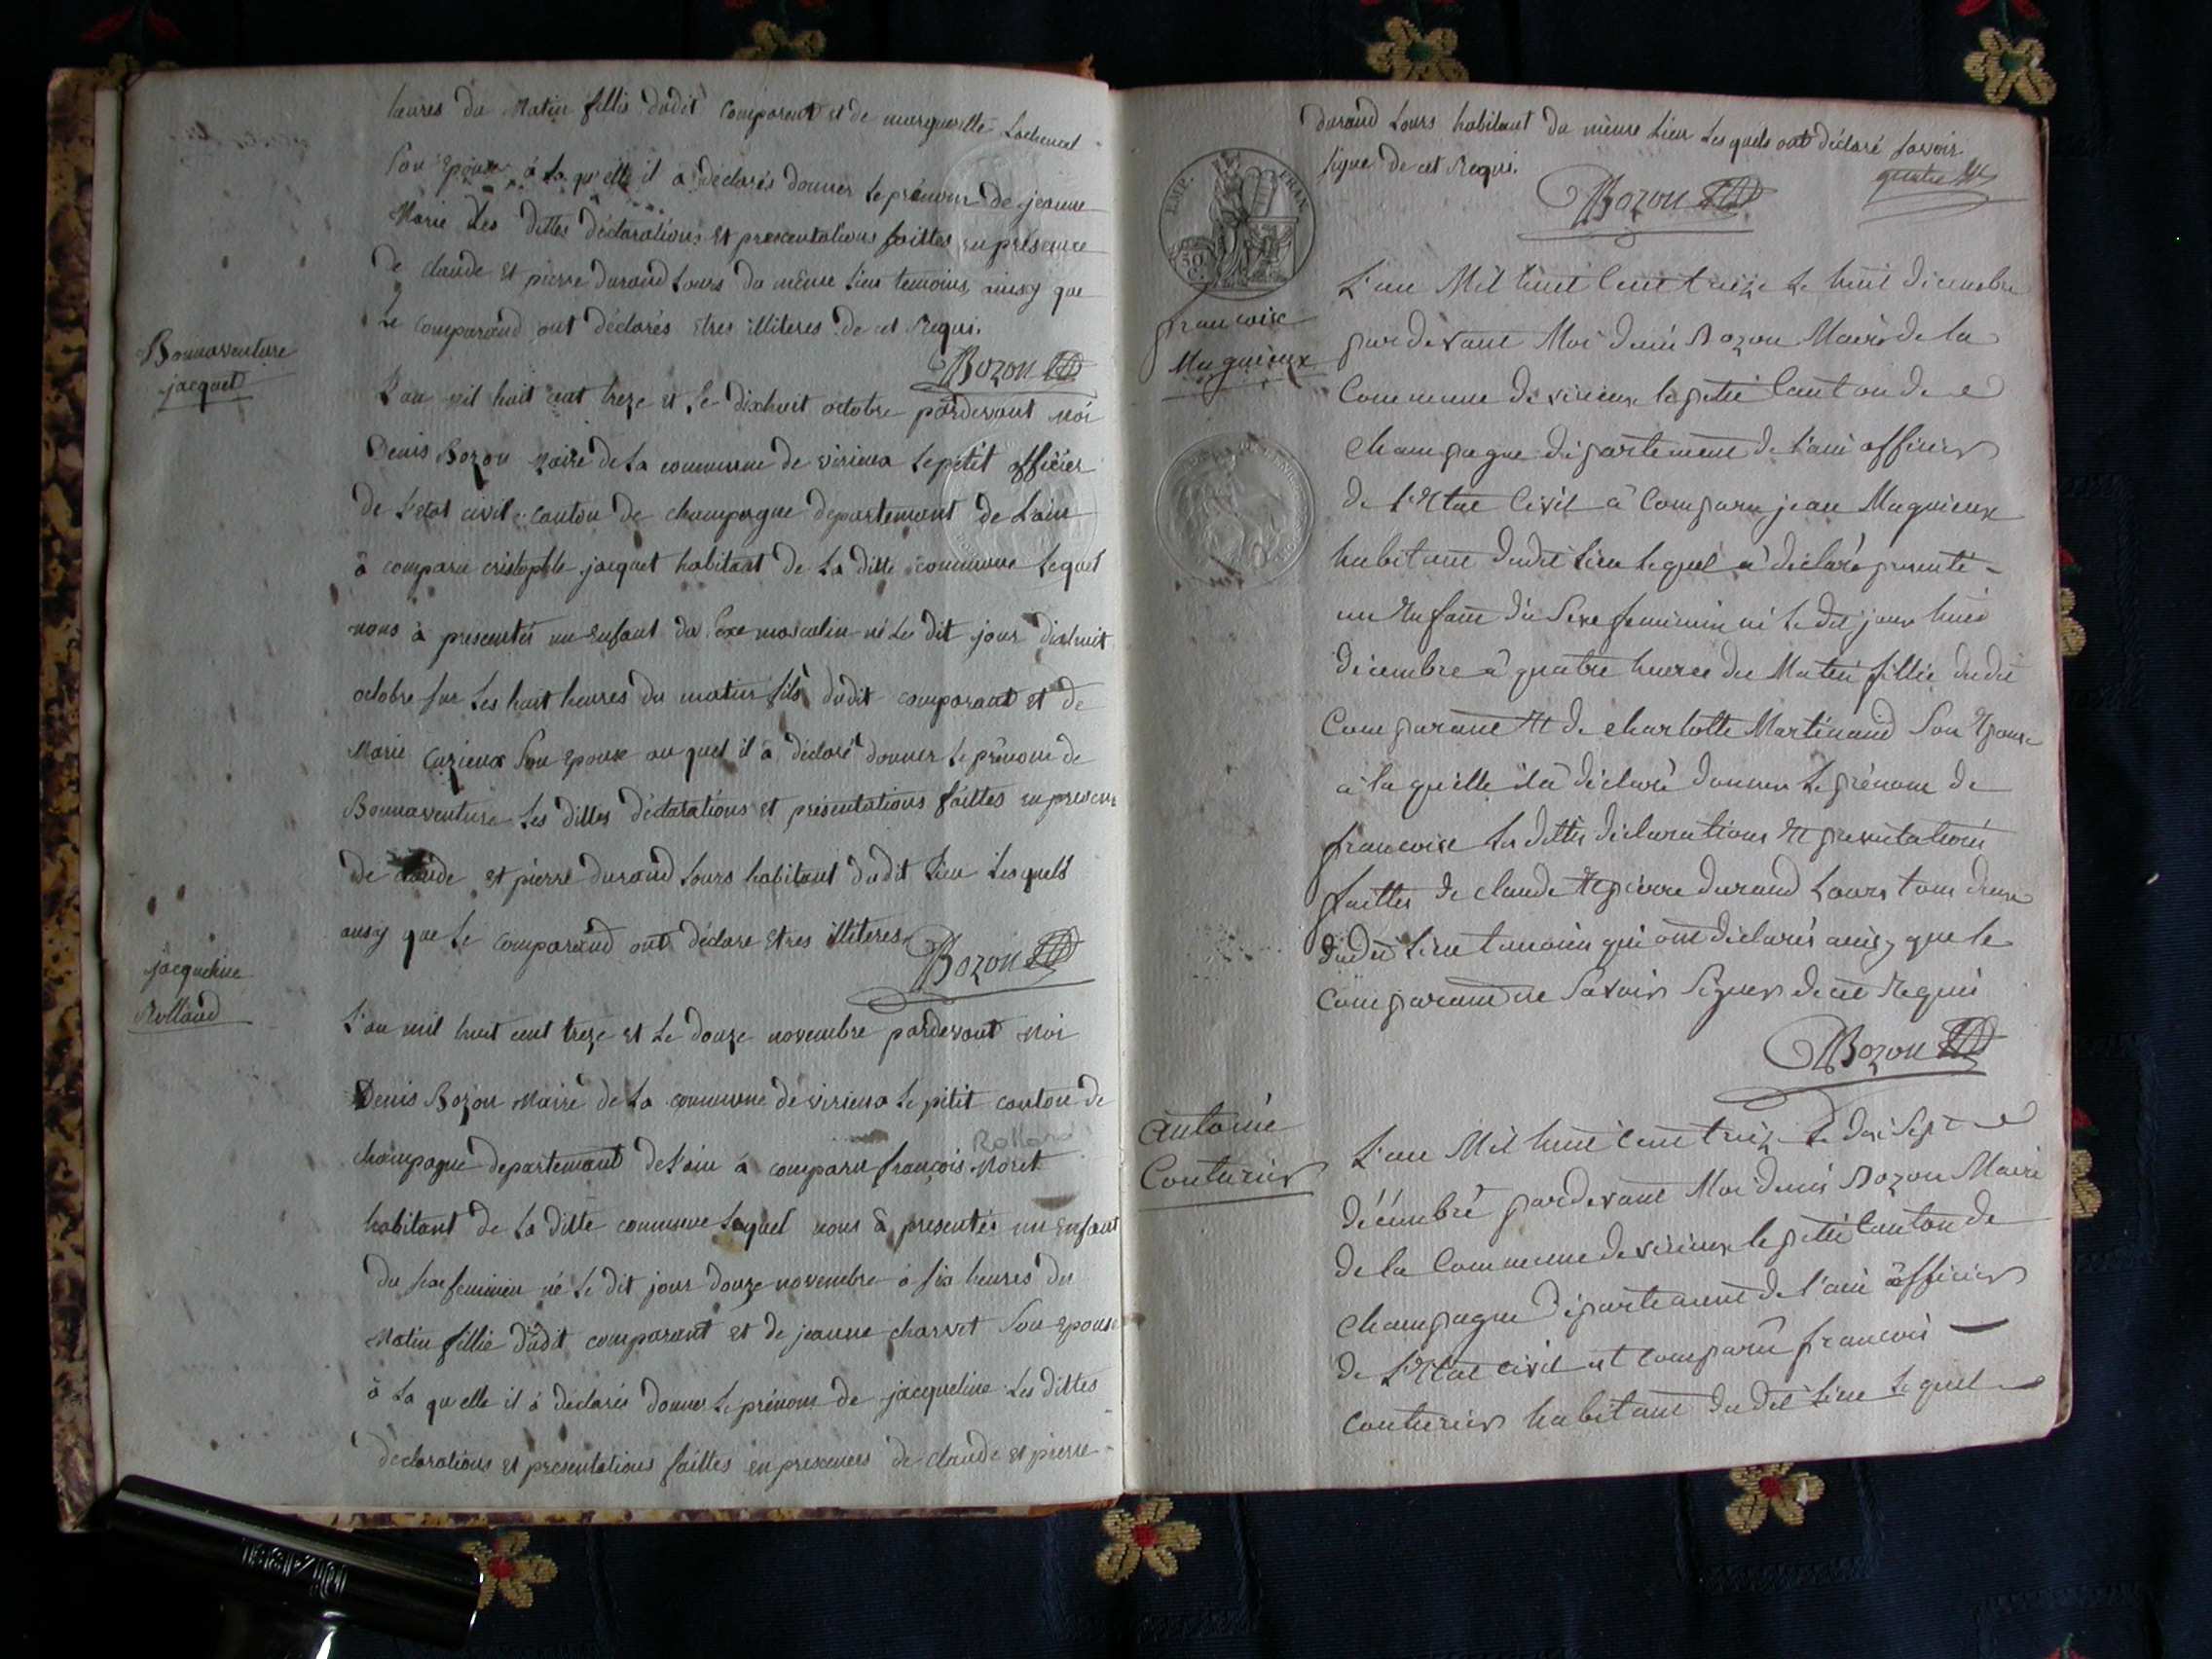 heures du Matin fillie dudit Comparant et de margueritte Lachenal
Son Epouse à La qu'elle il a déclarés donner Le prénom de jeanne
Marie Les dittes déclarations et presentations faittes en présence
de claude et pierre durand Lours du même Lieu temoins, ainsy que
Le comparand ont déclarés Etres illiteres de cet Requi.
Bozon
Bonnaventure
jacquet
L'an mil huit cent treze et Le dixhuit octobre pardevant moi
Denis Bozon Maire de La commune de virieux Le petit officier
de L'etat civil canton de champagne departement de Lain
à comparu cristophle jacquet habitant de La ditte commune Lequel
nous à presentés un enfant du sexe masculin né Le dit jour dixhuit
octobre sur Les huit heures du matin fils dudit comparant et de
Marie Cuzieux Son Epouse au quel il à déclaré donner Le prénom de
Bonnaventure Les dittes déclarations et présentations faittes en presence
de claude et pierre durand Lours habitant dudit Lieu Lesquels
ausy que Le comparand ont déclare Etres illiteres.
Bozon
jacqueline
Rolland
L'an mil huit cent treze et Le douze novembre pardevant Moi
Denis Bozon Maire de La commune de virieux Le petit canton de
champagne departemant de Lain à comparu françois Moret
Rolland
habitant de La ditte commune Lequel nous à presentés un enfant
du sexe feminin né Le dit jour douze novembre à six heures du
Matin fillie dudit comparant et de jeanne charvet Son Epouse
à La qu'elle il à déclarés donner Le prénom de jacqueline Les dittes
déclarations et presentations faittes en presences de claude et pierre
durand Lours habitant du même Lieu Lesquels ont déclaré savoir
signer de cet Requi.
Bozon
EMP. FRAN.
50
C.
francoise
Muguieux
L'an Mil huit Cent treize Le huit décembre
pardevant Moi denis Bozon Maire de la
Commune de virieux le petit Canton de
champagne département de l'ain officier
de l'Etat Civil à Comparu jean Muguieux
habitant dudit Lieu Lequel a déclaré presenté
un Enfant du Sexe feminin né Le dit jour huit
décembre à quatre heures du Matin fillie dudit
Comparant Et de charlotte Martinand Son Epouse
a la qu'elle il à déclaré donner Le prénom de
francoise Les dittes déclarations Et presentations
faittes de claude Et pierre durand Lours tous deux
dudit Lieu temoins qui ont déclarés ainsy que le
Comparant ne Savoir Signer de cet Requis
Bozon
antoine
Couturier
L'an Mil huit Cent treize Le dix Sept
décembre pardevant Moi denis Bozon Maire
de la Commune de virieux le petit Canton de
champagne Département de l'ain officier
de l'Etat civil est Comparu francois
couturier habitant dudit Lieu Lequel